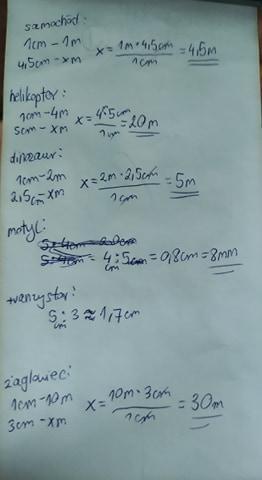 samochód:
1cm – 1m
4,5cm – xm x = 1m · 4,5cm / 1cm = 4,5m
helikopter:
1cm – 4m
5cm – xm x = 4 · 5cm / 1cm = 20m
dinozaur:
1cm – 2m
2,5cm – xm x = 2m · 2,5cm / 1cm = 5m
motyl:
4cm : 5cm = 0,8cm = 8mm
tranzystor:
5cm : 3 ≈ 1,7cm
żaglowiec:
1cm – 10m
3cm – xm x = 10m · 3cm / 1cm = 30m